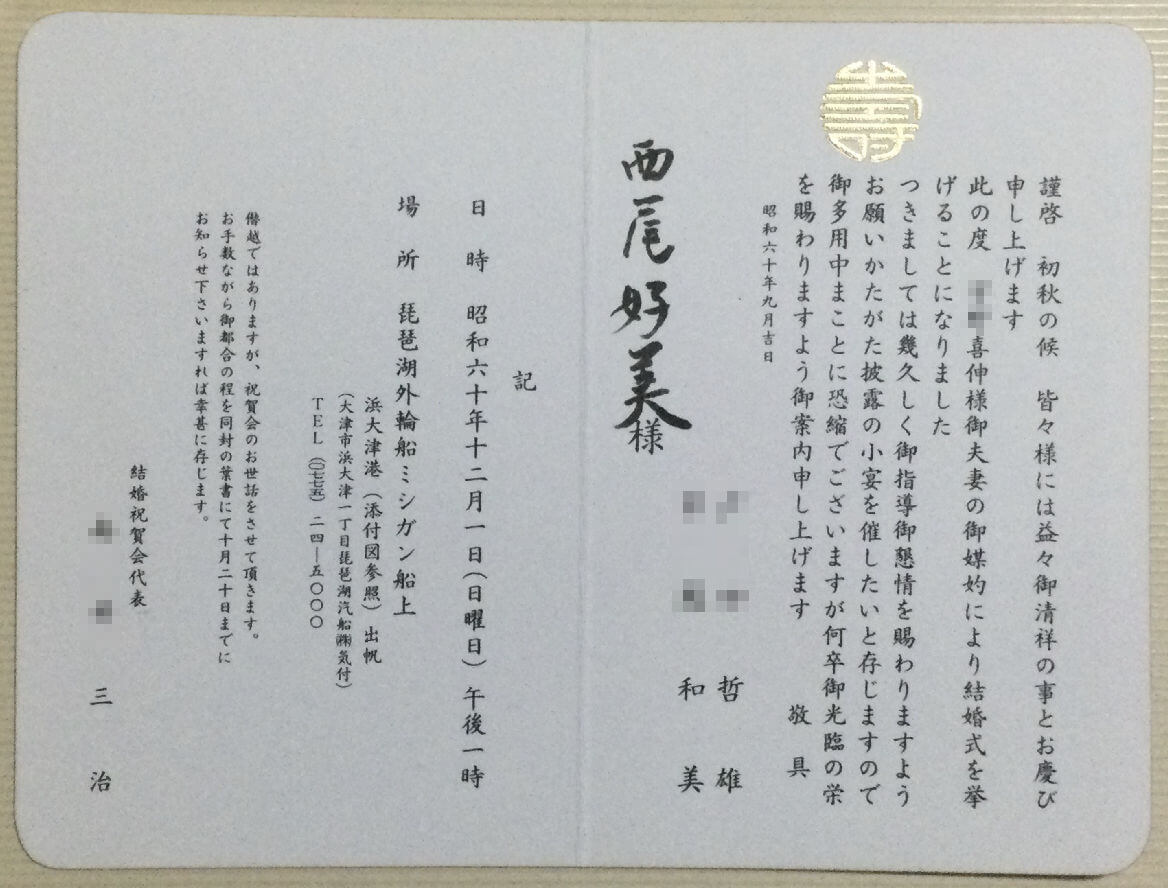 壽
謹啓 初秋の候 皆々様には益々御清祥の事とお慶び
申し上げます
此の度 喜伸様御夫妻の御媒妁により結婚式を挙
げることになりました
つきましては幾久しく御指導御懇情を賜わりますよう
お願いかたがた披露の小宴を催したいと存じますので
御多用中まことに恐縮でございますが何卒御光臨の栄
を賜わりますよう御案内申し上げます 敬具
昭和六十年九月吉日
哲雄
和美
西尾好美様
記
日時 昭和六十年十二月一日(日曜日)午後一時
場所 琵琶湖外輪船ミシガン船上
浜大津港(添付図参照)出帆
(大津市浜大津一丁目琵琶湖汽船㈱気付)
TEL(〇七七五)二四―五〇〇〇
僭越ではありますが、祝賀会のお世話をさせて頂きます。
お手数ながら御都合の程を同封の葉書にて十月二十日までに
お知らせ下さいますれば幸甚に存じます。
結婚祝賀会代表
三治